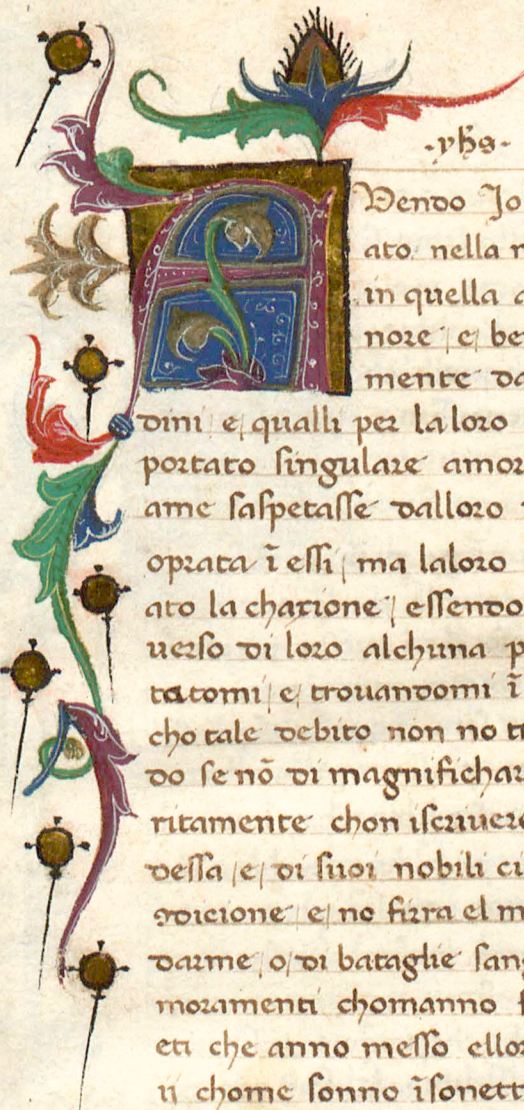 ·yhs·
AVendo Jo
ato nella
in quella
nore e be
mente da
dini e qualli per la loro
portato singulare amor
ame saspetasse dalloro
oprata ī essi ma laloro
ato la charione essendo
verso di loro alchuna p
tatomi e trovandomi ī
cho tale debito non no
do se nō di magnifichar
ritamente chon iscriver
dessa e di suoi nobili ci
e no firra el m
darme o di bataglie san
moramenti chomanno f
eti che anno messo ellor
ij chome sonno īsonett